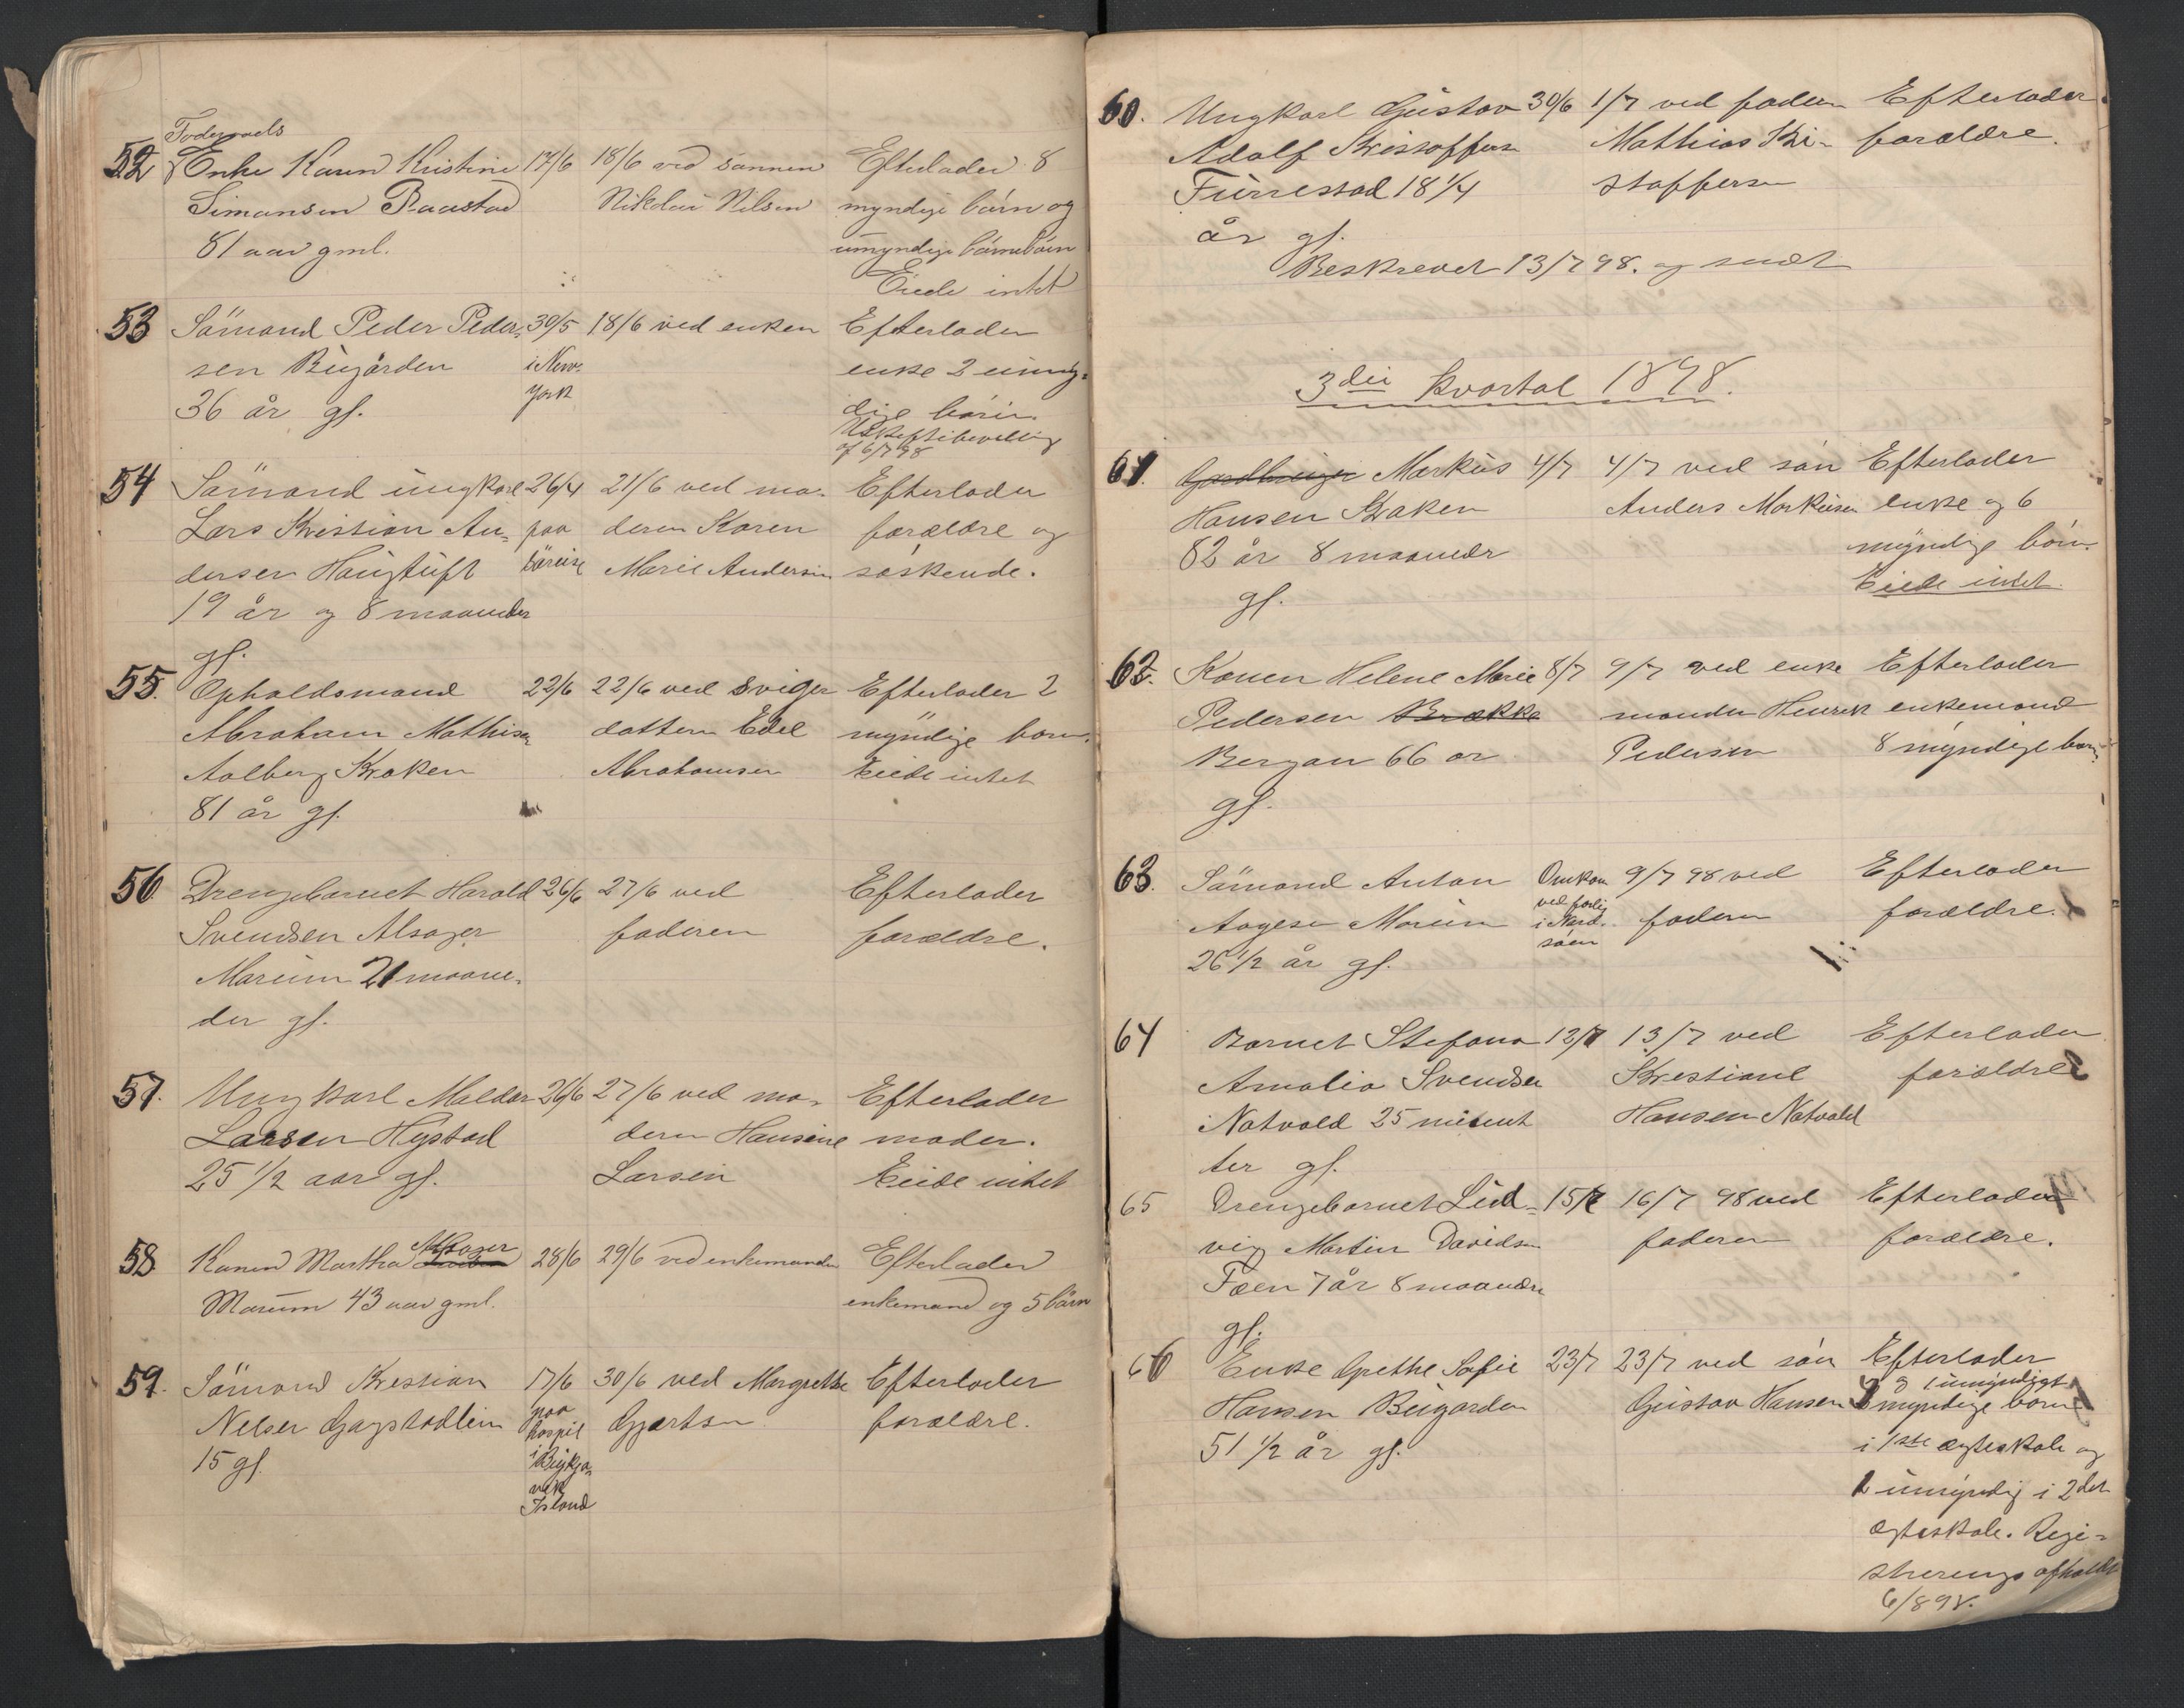 52 Enke Karen Kristine 17/6 18/6 ved sønnen Efterlader 8
Simonsen Raastad Nikolai Nilsen myndige børn og
81 aar gml. umyndige børnebørn
Eiede intet
53 Sømand Peder Peder- 30/5 18/6 ved enken Efterlader
sen Bugården i New- enke 2 umyn-
36 år gl. York dige børn.
Uskiftebevilling
af 6/7 98
54 Sømand ungkarl 26/4 21/6 ved mo- Efterlader
Lars Kristian An- paa deren Karen forældre og
dersen Haugtuft søreise Marie Andersen søskende.
19 år og 8 maaneder
gl.
55. Opholdsmand 22/6 22/6 ved sviger Efterlader 2
Abraham Mathisen datteren Edel myndige børn.
Aalberg Kroken Abrahamsen Eiede intet
81 år gl.
56. Drengebarnet Harald 26/6 27/6 ved Efterlader
Svendsen Alsager faderen forældre.
Marum 21 maane-
der gl.
57. Ungkarl Meldar 26/6 27/6 ved mo- Efterlader
Larsen Hystad deren Hansine moder.
25 1/2 aar gl. Larsen Eiede intet
58 Konen Martha Alsager 28/6 29/6 ved enkemanden Efterlader
Marum 43 aar gml. enkemand og 5 børn
59. Sømand Kristian 17/6 30/6 ved Margrethe Efterlader
Nelsen paa Gjertsen forældre.
15 gl. hospit
i Reykja-
vik
Island
60. Ungkarl Gustav 30/6 1/7 ved faderen Efterlader
Adolf Kristoffersen Mathias Kri- forældre.
Furrestad 18 1/4 stoffersen
år gl.
Beskrevet 13/7 98. og sendt
3die kvartal 1898.
61. Markus 4/7 4/7 ved søn Efterlader
Hansen Kroken Anders Markusen enke og 6
82 år 8 maaneder myndige børn.
gl. Eiede intet.
62. Konen Helene Marie 8/7 9/7 ved enke Efterlader
Pedersen Brække manden Henrik enkemand
Bergan 66 år Pedersen 8 myndige børn.
gl.
63. Sømand Anton Omkom 9/7 98 ved Efterlader
Aagesen Marum ved forlis faderen forældre.
26 1/2 år gl. i Nord-
søen
64 Barnet Stefana 12/7 13/7 ved Efterlader
Amalia Svendsen Kristiane forældre
Natvald 25 minut Hansen Natvald
ter gl.
65 Drengebarnet Lud- 15/7 16/7 98 ved Efterlader
vig Martin Davidsen faderen forældre.
Føen 7 år 8 maaneder
gl.
66 Enke Grethe Sofie 23/7 23/7 ved søn Efterlader
Hansen Bugården Gustav Hansen 3 myndige og 1 umyndigt børn
51 1/2 år gl. i 1ste ægteskab og
1 umyndig i 2det
ægteskab. Regi-
strerings afholdt
6/8 98.